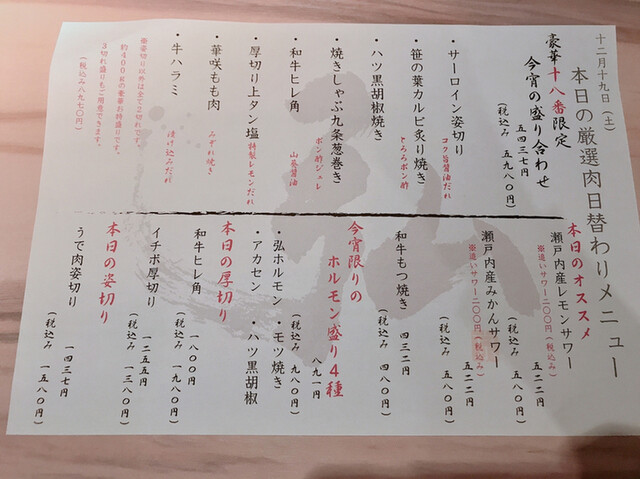 十二月十九日（土）
本日の厳選肉日替わりメニュー
豪華十八番限定
今宵の盛り合わせ
五四三七円
（税込み 五九八〇円）
・サーロイン姿切り
コク旨醤油だれ
・笹の葉カルビ炙り焼き
とろろポン酢
・ハツ黒胡椒焼き
・焼きしゃぶ九条葱巻き
ポン酢ジュレ
・和牛ヒレ角
山葵醤油
・厚切り上タン塩
特製レモンだれ
・華咲もも肉
みぞれ焼き
・牛ハラミ
漬け込みだれ
※姿切り以外は全て2切れです。
約400gの豪華お特盛りです。
3切れ盛りもご用意できます。
（税込み八九七〇円）
本日のオススメ
瀬戸内産レモンサワー
※追いサワー二〇〇円（税込み）
五二二円
（税込み 五八〇円）
瀬戸内産みかんサワー
※追いサワー二〇〇円（税込み）
五二二円
（税込み 五八〇円）
和牛もつ焼き
四三二円
（税込み 四八〇円）
今宵限りの
ホルモン盛り4種
八九一円
（税込み 九八〇円）
・弘ホルモン ・モツ焼き
・アカセン ・ハツ黒胡椒
本日の厚切り
和牛ヒレ角
一八〇〇円
（税込み 一九八〇円）
イチボ厚切り
一二五五円
（税込み 一三八〇円）
本日の姿切り
うで肉姿切り
一四三七円
（税込み 一五八〇円）